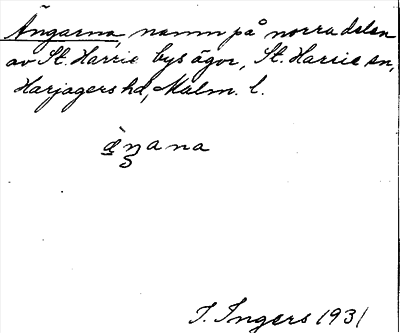 Ängarna, namn på norra delen
av St. Harrie bys ägor, St. Harrie sn,
Harjagers hd, Malm. l.
I. Ingers 1931